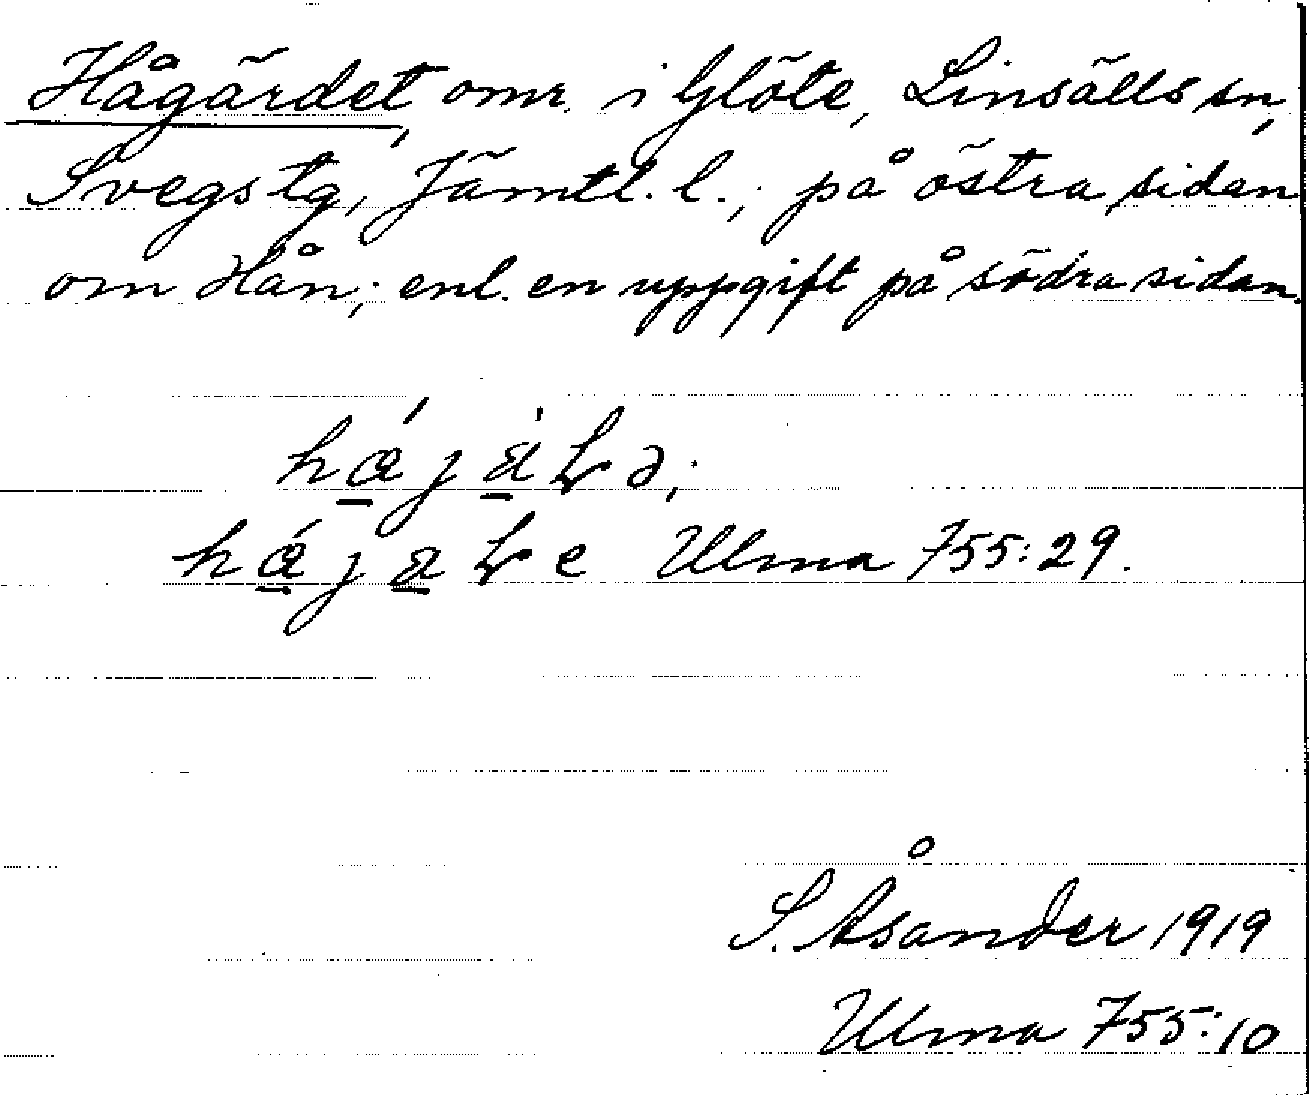 Hågärdet, omr. i Glöte, Linsälls sn,
Svegs tg, Jämtl. l.; på östra sidan
om Hån; enl. en uppgift på södra sidan.
Ulma 755:29.
S. Åsander 1919
Ulma 755:10